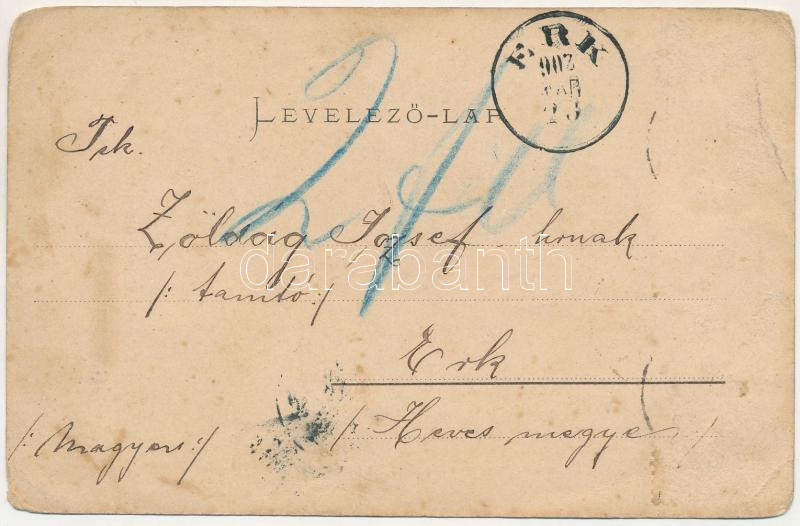 ERK
902
MAR
23
LEVELEZŐ-LAP
Tek.
Zöldág József urnak
/: tanitó :/
Erk
/: Heves megye :/
/: Magyar :/
darabanth